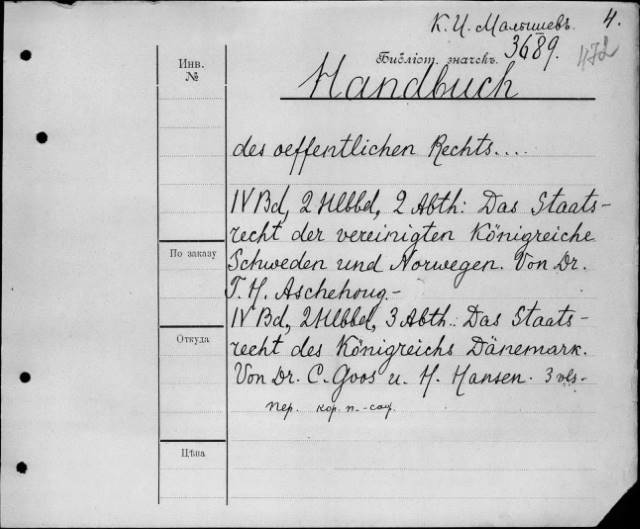 К. И. Малышевъ. 4.
Библіот. значекъ. 3689. 472
Инв.
№
Handbuch
des oeffentlichen Rechts....
IV Bd, 2 Hlbbd, 2 Abth: Das Staats-
recht der vereinigten Königreiche
По заказу
Schweden und Norwegen. Von Dr.
T. H. Aschehoug.-
IV Bd, 2 Hlbbd, 3 Abth.: Das Staats-
Откуда
recht des Königreichs Dänemark.
Von Dr. C. Goos u. H. Hansen. 3 vls-
пер. кор. п.-саф.
Цѣна